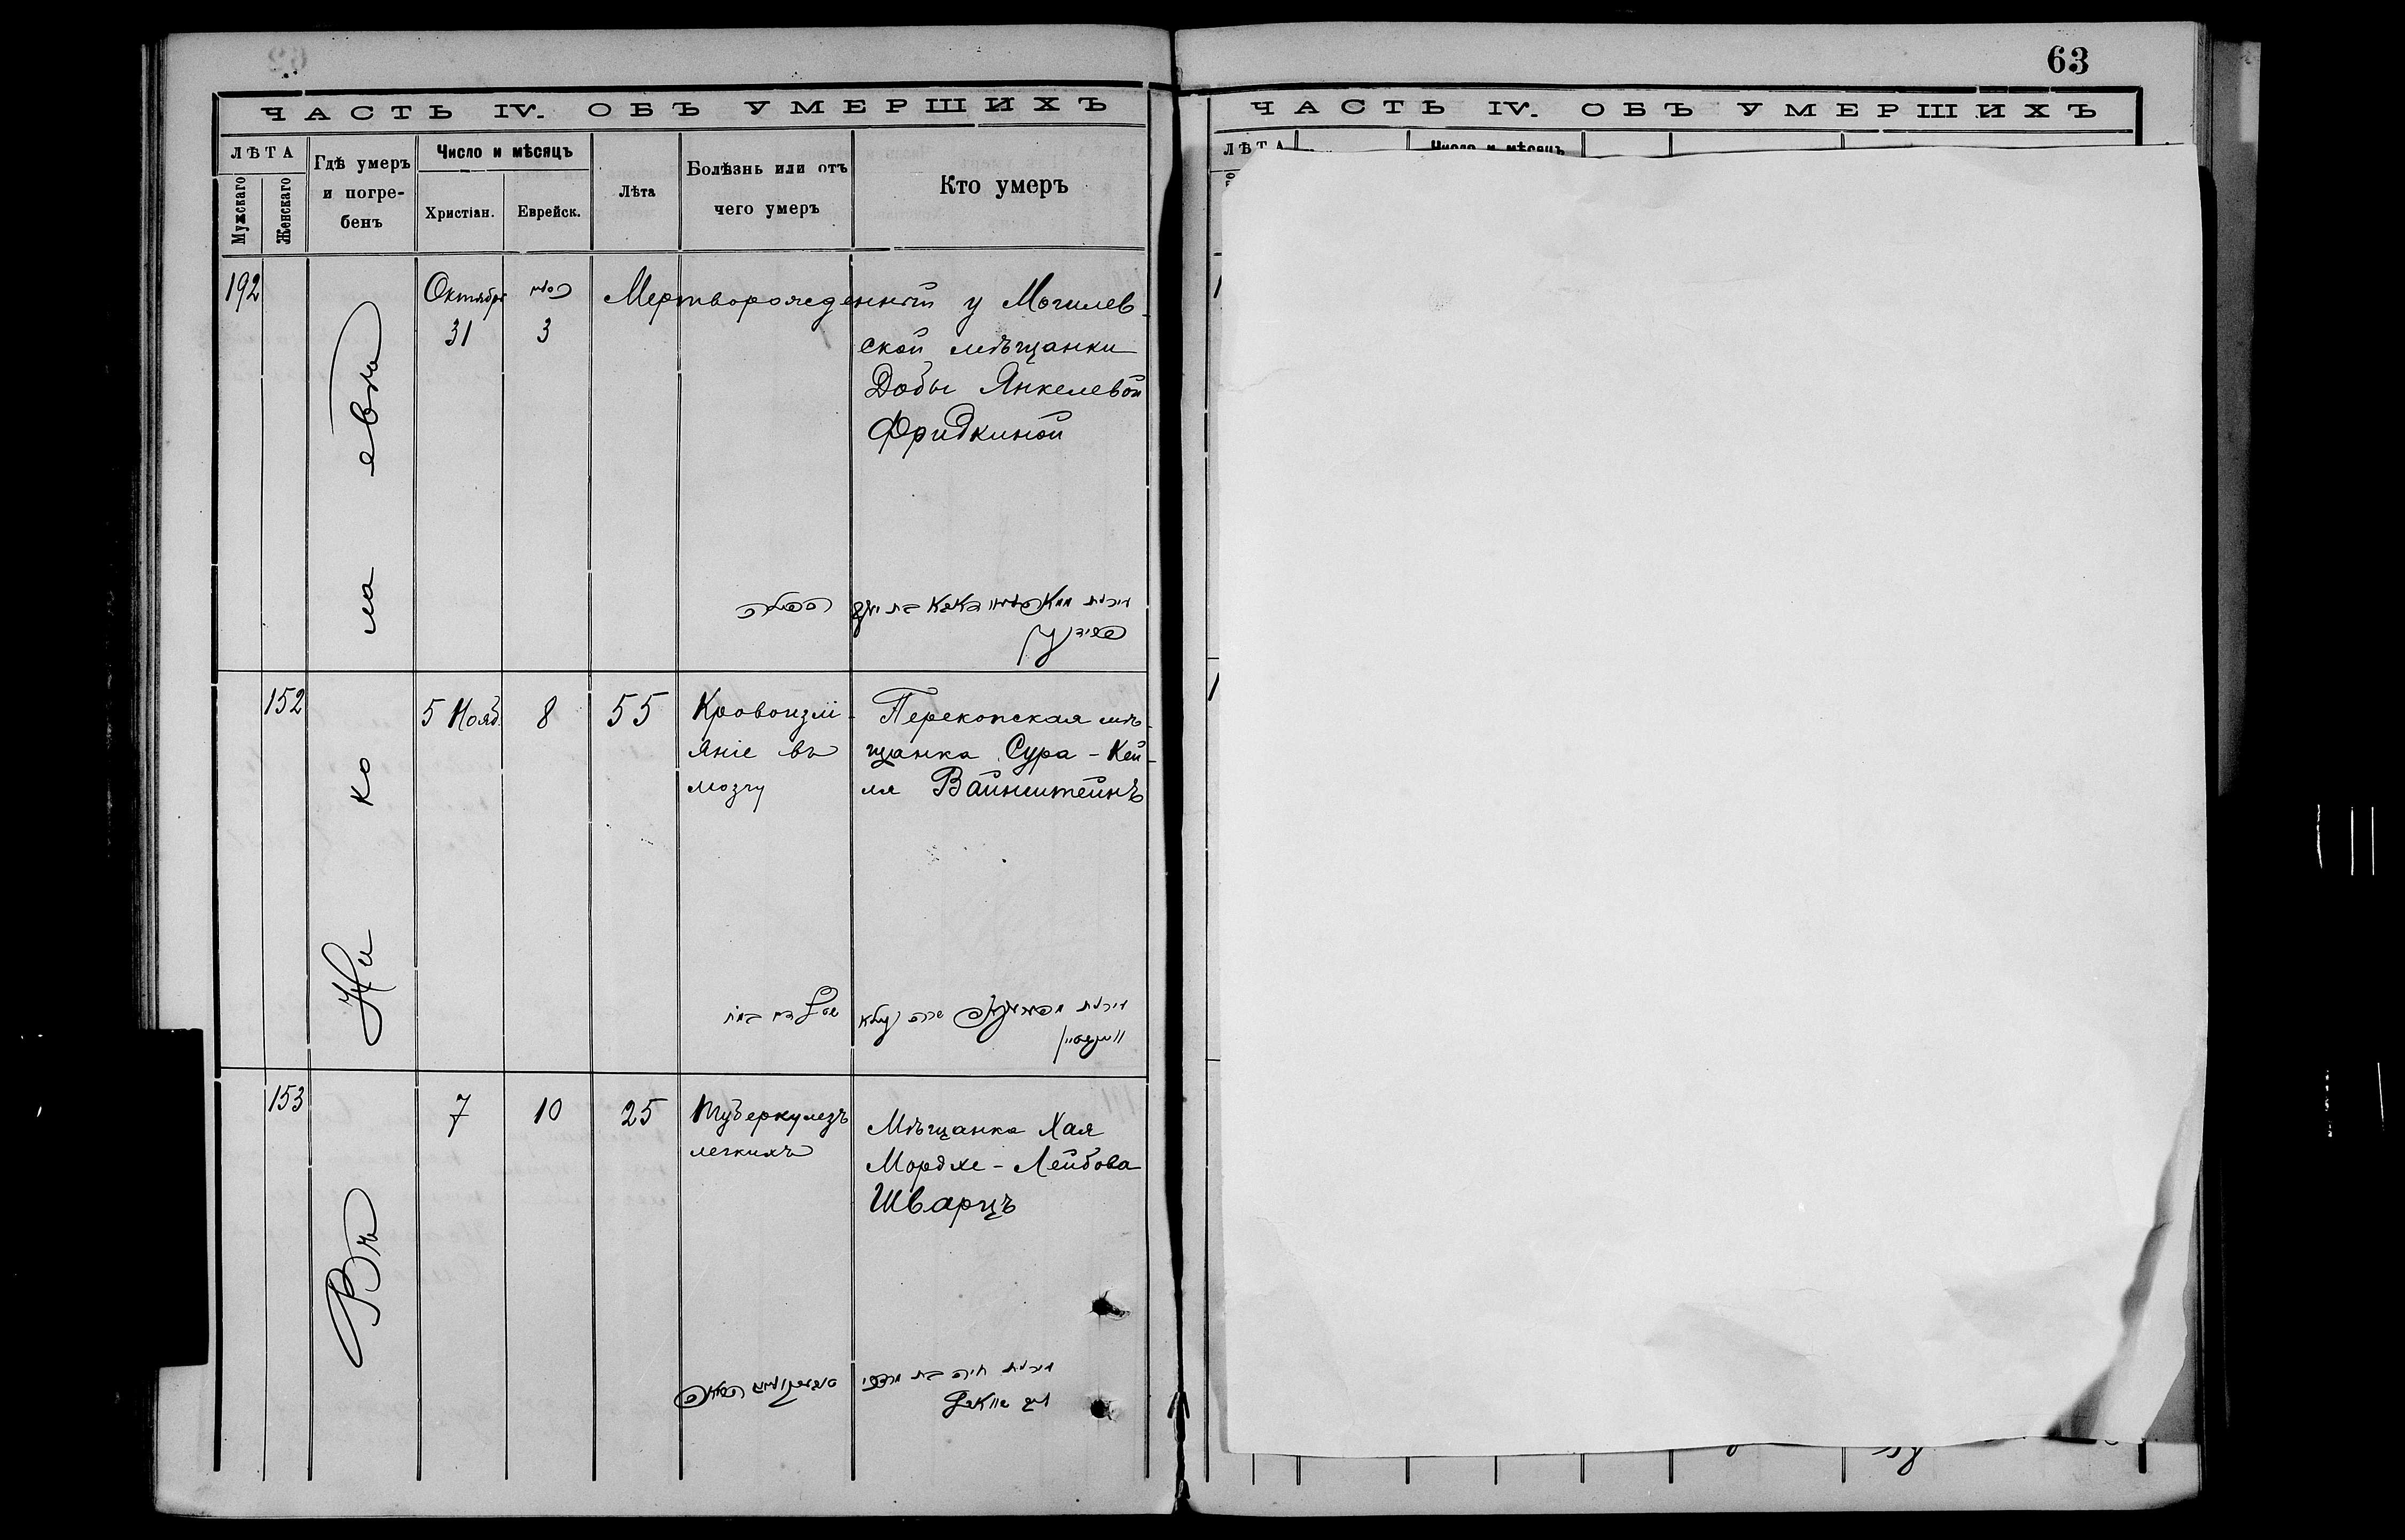 63
ЧАСТЬ IV. ОБЪ УМЕРШИХЪ
ЛѢТА
Мужскаго
Женскаго
Гдѣ умеръ
и погре-
бенъ
Число и мѣсяцъ
Христіан.
Еврейск.
Лѣта
Болѣзнь или отъ
чего умеръ
Кто умеръ
Въ Николаевѣ
192
Октября
31
3
Мертворожденный у Могилев-
ской мѣщанки
Добы Янкелевой
Фридкиной
152
5 Нояб.
8
55
Кровоизлі-
яніе въ
мозгу
Перекопская мѣ-
щанка Сура-Кей-
ля Вайнштейнъ
153
7
10
25
Туберкулезъ
легкихъ
Мѣщанка Хая
Мордхе-Лейбова
Шварцъ
ЧАСТЬ IV. ОБЪ УМЕРШИХЪ
ЛѢТА
Число и мѣсяцъ